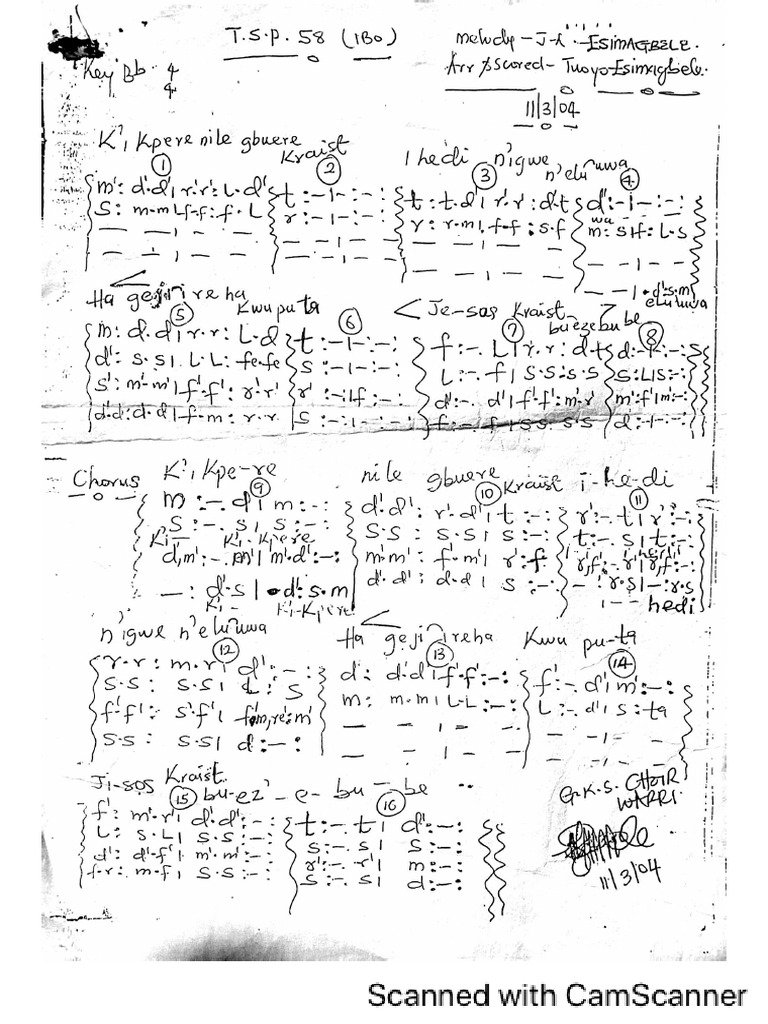 T.S.P. 58 (IBO)
melody - J-A - ESIMAGBELE.
Key Bb 4
4
Arr & Scored - Tuoyo-Esimagbele.
11/3/04
K', Kpere nile gbuere Kraist Ihedi n'igwe n'elu'uwa
① ② ③ ④
m': d'.d'| r'.r': L.d' t :-|-:-: t : t.d'| r'.r' : d'.t d' :-|-:-:
S : m.m L f.f : f.L r :-|-:-: r : r.m| f.f : s.f m : s|f : L.s
wa
- - | - - - - | - - - - | - - - - | - -
- - | - - - - | - - - - | - - - - | . d'.s.m
elu'uwa
Ha geji'ireha Kwuputa Je-sos Kraist bu eze bu be
⑤ ⑥ ⑦ ⑧
m : d.d| r.r : L.d t :-|-:-: f :-. L| r.r : d.t d :-|-:-:
d' : s.s| L.L : fe.fe S :-|-:-: L :-. f| S.S : S.S S : L|S :-:
S' : m'.m'| f'.f' : r'.r' r' :-|f :-: d' :-. d'| f'.f' : m'.r' m' : f'|m' :-:
d'.d : d.d| f.m : r.r S :-|-:-: f :-. f| S.S : S.S d :-|-:-:
Chorus K', Kpe-re nile gbuere Kraist i-he-di
⑨ ⑩ ⑪
m :-. d| m :-: d'.d' : r'.d'| t :-: r' :-. t| r' :-:
S :-. s| s :-: S.S : S.S| S :-: t :-. s| t :-:
Ki- Ki-Kpere
d',m' :-. m'| m'.d' :-: m'.m' : f'.m'| r' : f r',f' :-. r'| r',f :-:
- : d'.s| . d' : s.m d'.d' : d.d| S :-: - : r.s| - : r.s
Ki- Ki-Kpere hedi
n'igwe n'elu'uwa Ha geji'ireha Kwu pu-ta
⑫ ⑬ ⑭
r.r : m.r| d' :-: d : d.d| f'.f' :-: f' :-. d'| m' :-:
S.S : S.S| L : S m : m.m| L.L :-: L :-. d'| s : ta
f'.f' : s'.f'| f',m',re' : m' - - | - - - - | - -
S.S : S.S| d :-: - - | - - - - | - -
Ji-sos Kraist bu-ez'-e-bu-be
⑮ ⑯
f' : m'.r'| d'.d' :-: t :-. t| d' :-:
L : S.L| S.S :-: S :-. s| S :-:
d' : d'.f'| m'.m' :-: r' :-. r'| m :-:
f.r : m.f| S.S :-: S :-. s| d :-:
G.K.S. CHOIR
WARRI.
11/3/04
Scanned with CamScanner